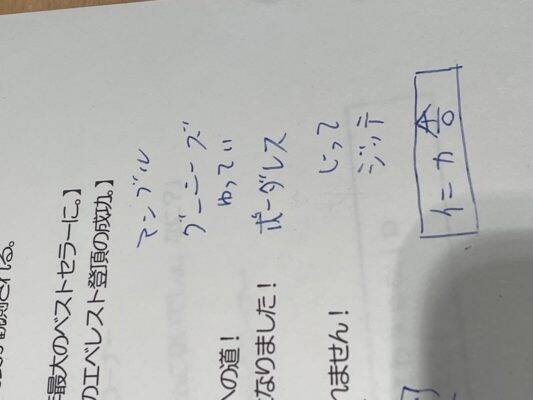 観測される。
最大のベストセラーに。】
のエベレスト登頂の成功。】
マンブル
グーニーズ
への道！ ゆってい
なりました！ ボーダレス
れません！ じって
ジッテ